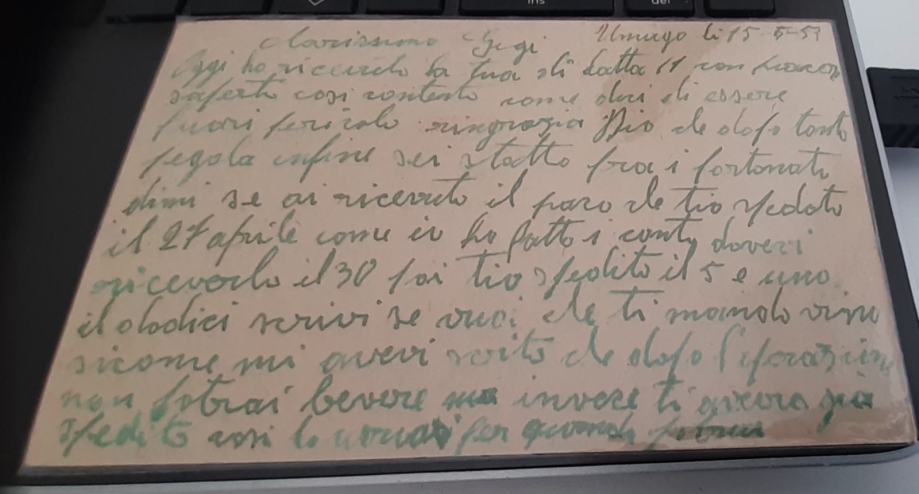 Carissimo Gigi Umago li 15-5-53
Oggi ho ricevuto la tua di datta 11 con
saperti così contento come dici di essere
fuori pericolo ringrazia Dio che dopo tanto
pegola infine sei statto fra i fortunati
dimi se ai ricevuto il paco che tio spedito
il 27 aprile come io ho fatto i conti dovevi
riceverlo il 30 poi tio spedito il 5 e uno
il dodici scrivi se vuoi che ti mando vino
sicome mi avevi scrito che dopo l'operazione
non potrai bevere ma invece ti avevo già
spedito così lo per quando